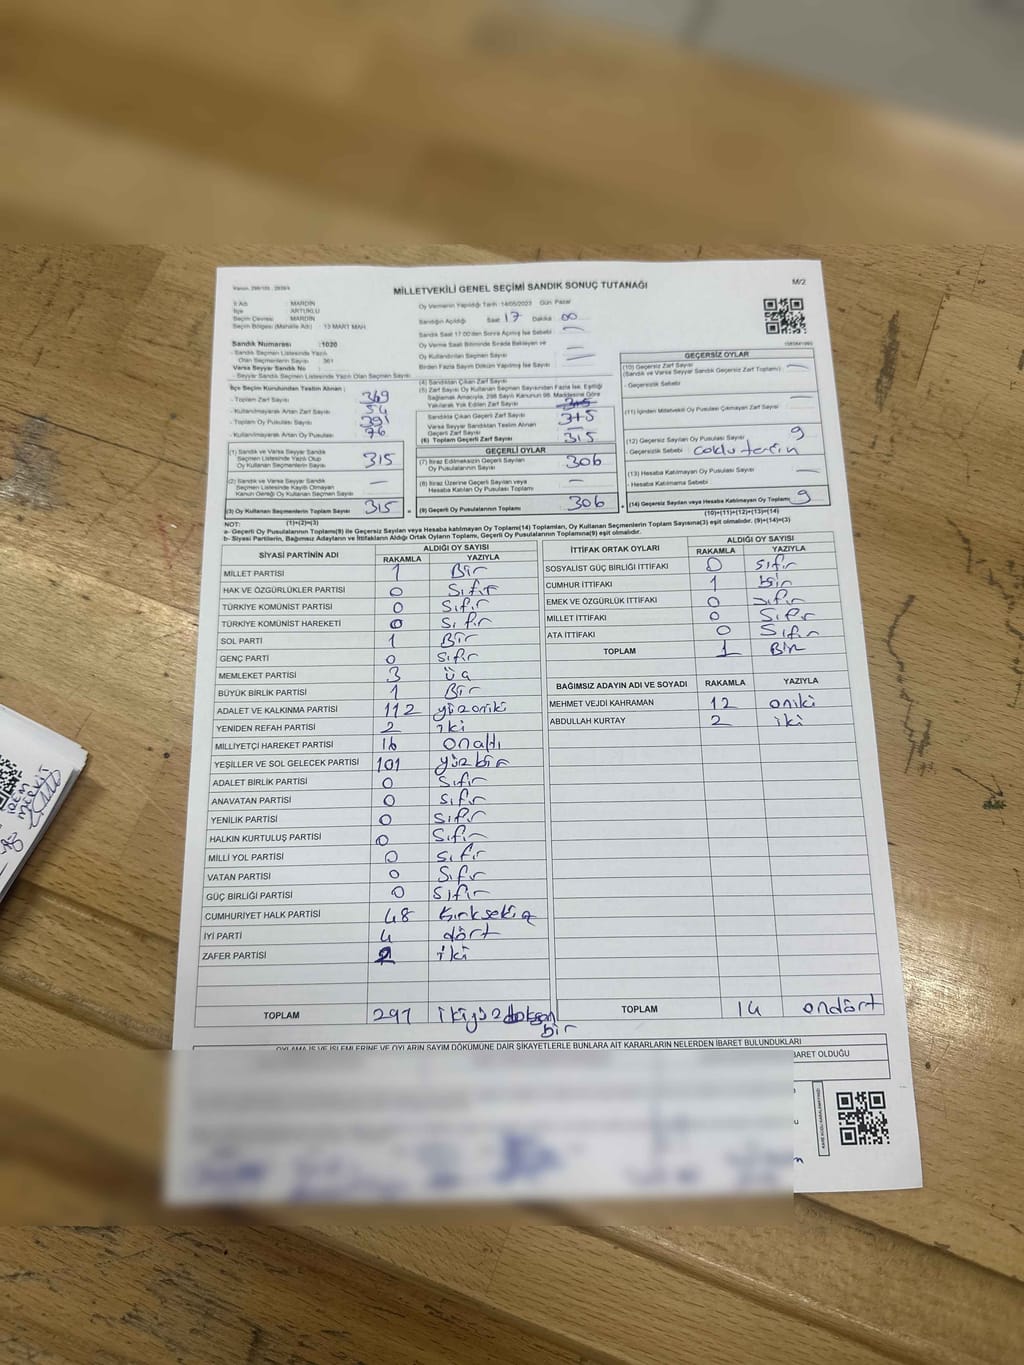 MİLLETVEKİLİ GENEL SEÇİMİ SANDIK SONUÇ TUTANAĞI
M/2
İl Adı : MARDİN
İlçe : ARTUKLU
Seçim Çevresi : MARDİN
Seçim Bölgesi (Mahalle Adı) : 13 MART MAH.
Sandık Numarası :1020
- Sandık Seçmen Listesinde Yazılı
Olan Seçmenlerin Sayısı : 361
Varsa Seyyar Sandık No :
- Seyyar Sandık Seçmen Listesinde Yazılı Olan Seçmen Sayısı:
Oy Vermenin Yapıldığı Tarih :14/05/2023 Gün: Pazar
Sandığın Açıldığı Saat 17 Dakika 00
Sandık Saat 17.00'den Sonra Açılmış İse Sebebi
Oy Verme Saati Bitiminde Sırada Bekleyen ve
Oy Kullandırılan Seçmen Sayısı
Birden Fazla Sayım Döküm Yapılmış İse Sayısı
İlçe Seçim Kurulundan Teslim Alınan ;
- Toplam Zarf Sayısı 369
- Kullanılmayarak Artan Zarf Sayısı 54
- Toplam Oy Pusulası Sayısı 391
- Kullanılmayarak Artan Oy Pusulası 76
(1) Sandık ve Varsa Seyyar Sandık
Seçmen Listesinde Yazılı Olup
Oy Kullanan Seçmenlerin Sayısı 315
(2) Sandık ve Varsa Seyyar Sandık
Seçmen Listesinde Kayıtlı Olmayan
Kanun Gereği Oy Kullanan Seçmen Sayısı —
(3) Oy Kullanan Seçmenlerin Toplam Sayısı 315
(1)+(2)=(3)
(4) Sandıktan Çıkan Zarf Sayısı
(5) Zarf Sayısı Oy Kullanan Seçmen Sayısından Fazla İse, Eşitliği
Sağlamak Amacıyla, 298 Sayılı Kanunun 98. Maddesine Göre
Yakılarak Yok Edilen Zarf Sayısı
Sandıkta Çıkan Geçerli Zarf Sayısı 315
Varsa Seyyar Sandıktan Teslim Alınan
Geçerli Zarf Sayısı —
(6) Toplam Geçerli Zarf Sayısı 315
GEÇERLİ OYLAR
(7) İtiraz Edilmeksizin Geçerli Sayılan
Oy Pusulalarının Sayısı 306
(8) İtiraz Üzerine Geçerli Sayılan veya
Hesaba Katılan Oy Pusulası Toplamı —
(9) Geçerli Oy Pusulası Toplamı 306
GEÇERSİZ OYLAR
(10) Geçersiz Zarf Sayısı
(Sandık ve Varsa Seyyar Sandık Geçersiz Zarf Toplamı) —
- Geçersizlik Sebebi
(11) İçinden Milletvekili Oy Pusulası Çıkmayan Zarf Sayısı —
(12) Geçersiz Sayılan Oy Pusulası Sayısı 9
- Geçersizlik Sebebi : çoklu tercih
(13) Hesaba Katılmayan Oy Pusulası Sayısı —
- Hesaba Katılmama Sebebi
(14) Geçersiz Sayılan veya Hesaba Katılmayan Oy Toplamı 9
(10)+(11)+(12)+(13)=(14)
NOT:
a- Geçerli Oy Pusulalarının Toplamı(9) ile Geçersiz Sayılan veya Hesaba katılmayan Oy Toplamı(14) Toplamları, Oy Kullanan Seçmenlerin Toplam Sayısına(3) eşit olmalıdır. (9)+(14)=(3)
b- Siyasi Partilerin, Bağımsız Adayların ve İttifakların Aldığı Ortak Oyların Toplamı, Geçerli Oy Pusulalarının Toplamına(9) eşit olmalıdır.
SİYASİ PARTİNİN ADI
ALDIĞI OY SAYISI
RAKAMLA YAZIYLA
MİLLET PARTİSİ 1 Bir
HAK VE ÖZGÜRLÜKLER PARTİSİ 0 Sıfır
TÜRKİYE KOMÜNİST PARTİSİ 0 Sıfır
TÜRKİYE KOMÜNİST HAREKETİ 0 Sıfır
SOL PARTİ 1 Bir
GENÇ PARTİ 0 Sıfır
MEMLEKET PARTİSİ 3 üç
BÜYÜK BİRLİK PARTİSİ 1 Bir
ADALET VE KALKINMA PARTİSİ 112 yüzoniki
YENİDEN REFAH PARTİSİ 2 iki
MİLLİYETÇİ HAREKET PARTİSİ 16 onaltı
YEŞİLLER VE SOL GELECEK PARTİSİ 101 yüzbir
ADALET BİRLİK PARTİSİ 0 Sıfır
ANAVATAN PARTİSİ 0 Sıfır
YENİLİK PARTİSİ 0 Sıfır
HALKIN KURTULUŞ PARTİSİ 0 Sıfır
MİLLİ YOL PARTİSİ 0 Sıfır
VATAN PARTİSİ 0 Sıfır
GÜÇ BİRLİĞİ PARTİSİ 0 Sıfır
CUMHURİYET HALK PARTİSİ 48 kırksekiz
İYİ PARTİ 4 dört
ZAFER PARTİSİ 2 iki
TOPLAM 291 ikiyüzdoksan
bir
İTTİFAK ORTAK OYLARI
ALDIĞI OY SAYISI
RAKAMLA YAZIYLA
SOSYALİST GÜÇ BİRLİĞİ İTTİFAKI 0 Sıfır
CUMHUR İTTİFAKI 1 bir
EMEK VE ÖZGÜRLÜK İTTİFAKI 0 Sıfır
MİLLET İTTİFAKI 0 Sıfır
ATA İTTİFAKI 0 Sıfır
TOPLAM 1 Bir
BAĞIMSIZ ADAYIN ADI VE SOYADI RAKAMLA YAZIYLA
MEHMET VEJDİ KAHRAMAN 12 oniki
ABDULLAH KURTAY 2 iki
TOPLAM 14 ondört
OYLAMA İŞ VE İŞLEMLERİNE VE OYLARIN SAYIM DÖKÜMÜNE DAİR ŞİKAYETLERLE BUNLARA AİT KARARLARIN NELERDEN İBARET BULUNDUKLARI
BARET OLDUĞU